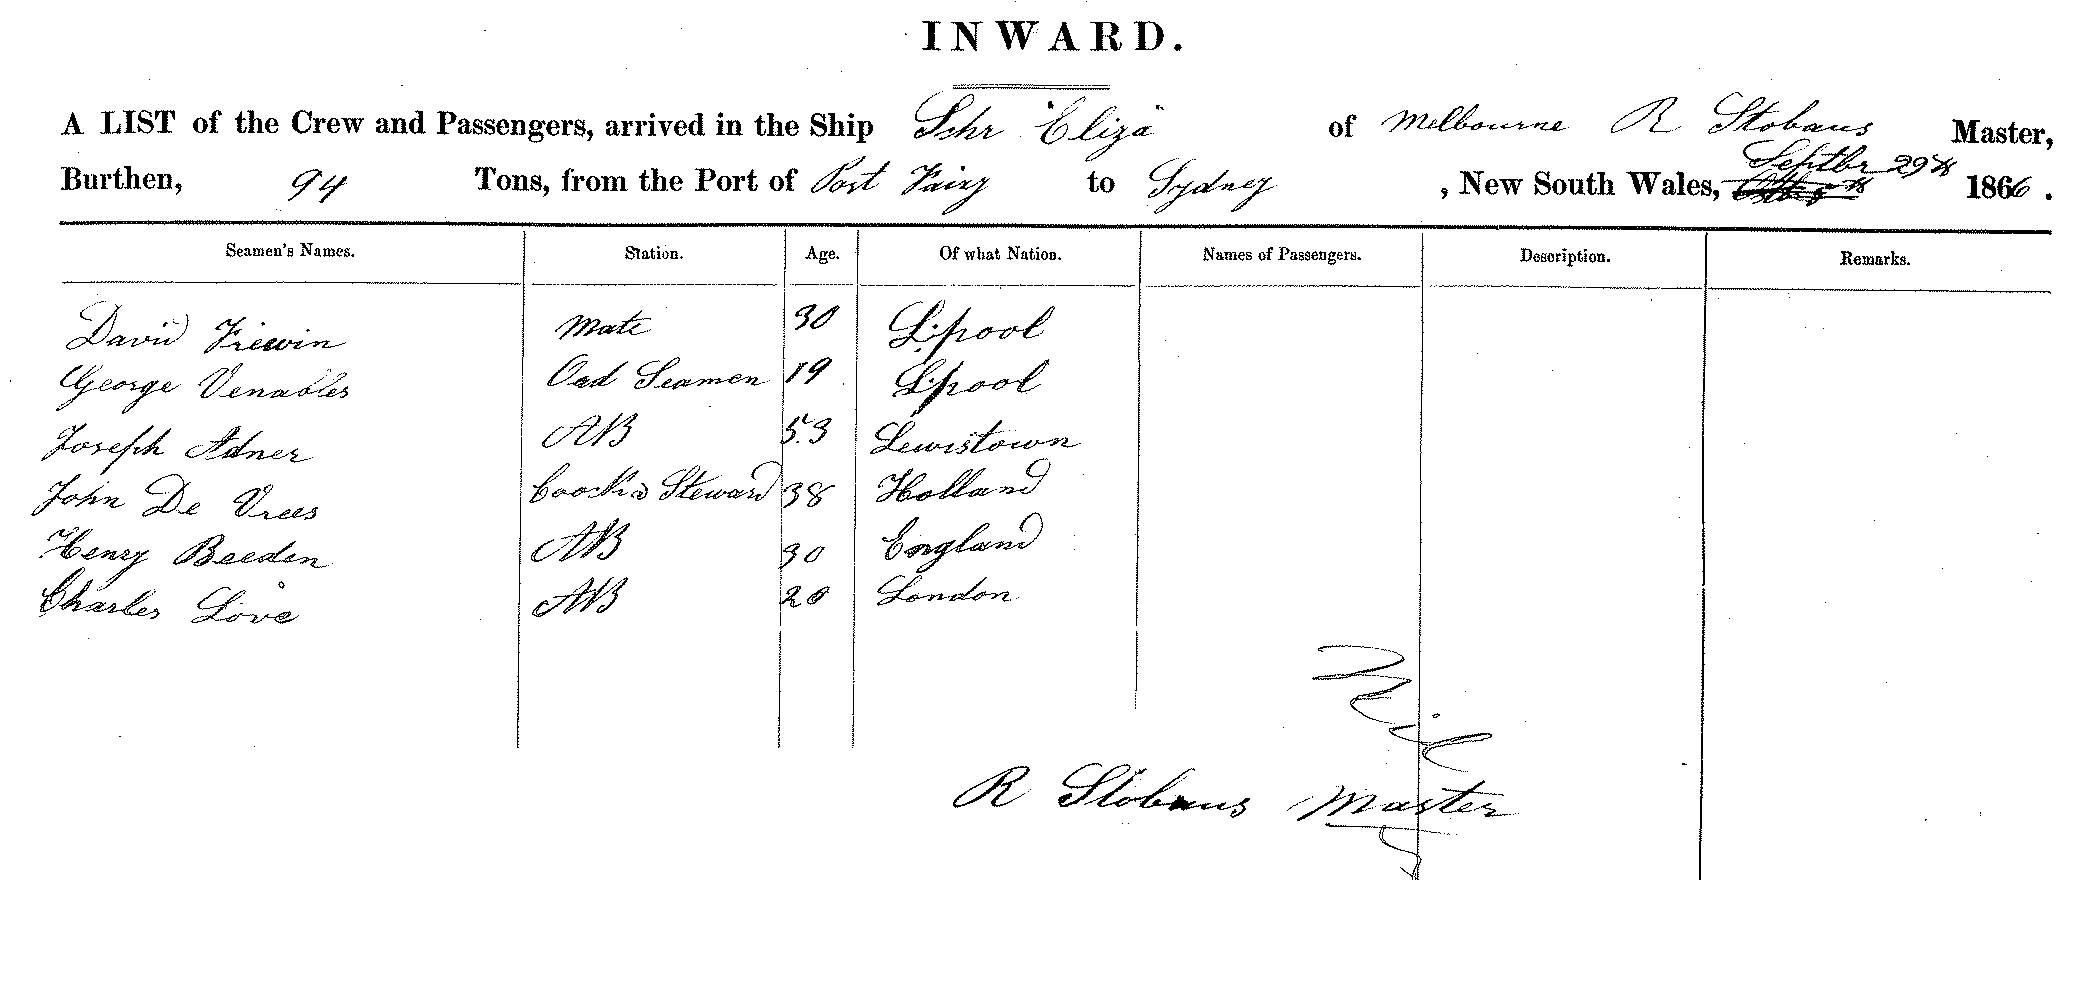 INWARD.
A LIST of the Crew and Passengers, arrived in the Ship Schr "Eliza" of Melbourne R Stobaus Master,
Burthen, 94 Tons, from the Port of Port Fairy to Sydney , New South Wales, Septbr 29th 1866.
Seamen's Names. Station. Age. Of what Nation. Names of Passengers. Description. Remarks.
David Frewin Mate 30 L.pool
George Venables Ord Seamen 19 L.pool
Joseph Adner AB 53 Lewistown
John De Vrees Cook & Steward 38 Holland
Henry Beeden AB 30 England
Charles Love AB 20 London
Nil
R Stobaus Master